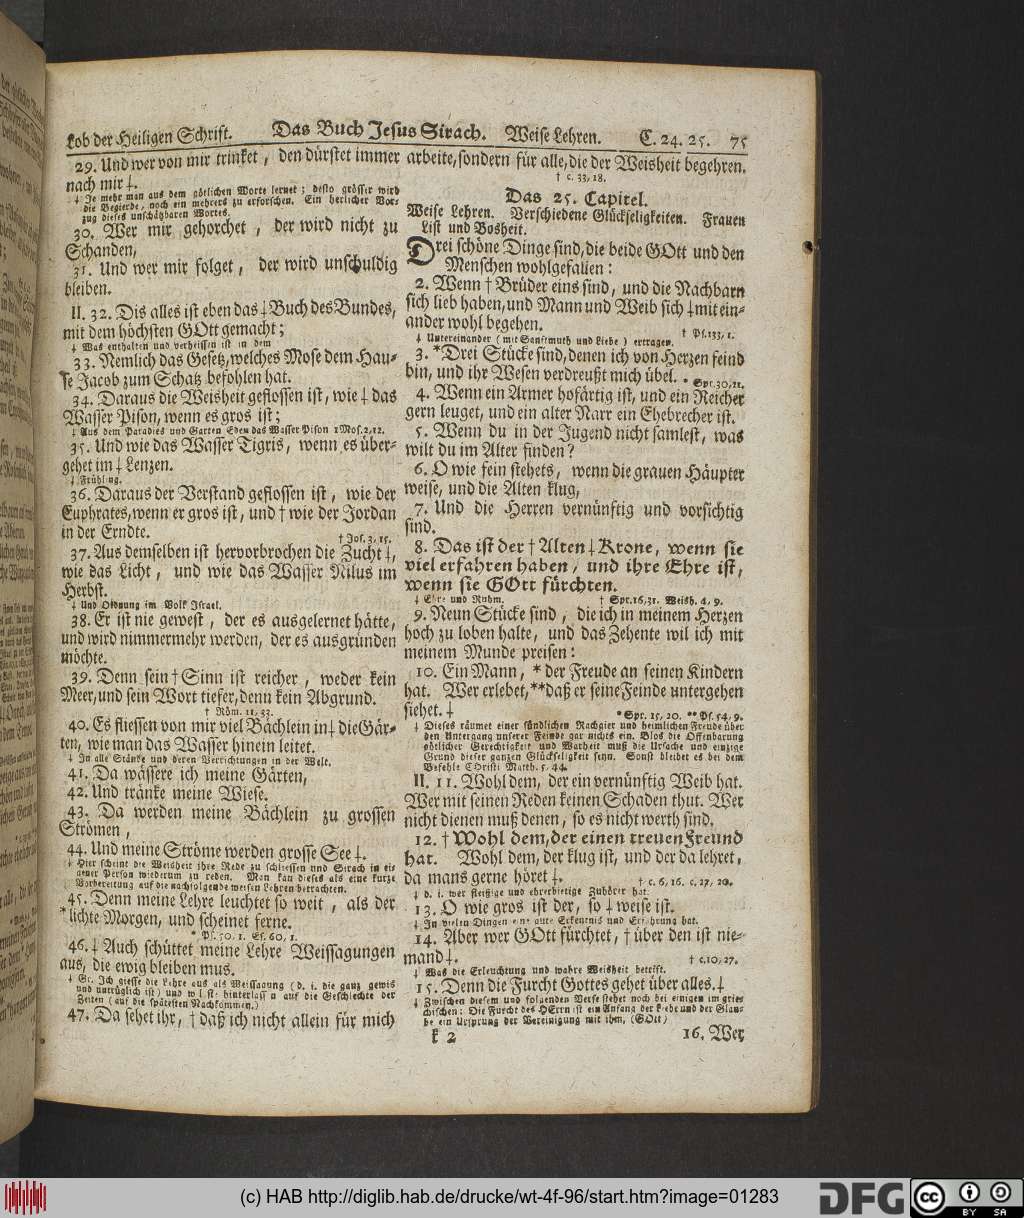 Lob der Heiligen Schrift. Das Buch Jesus Sirach. Weise Lehren. C. 24. 25. 75
29. Und wer von mir trinket, den dürstet immer
nach mir ‡.
‡ Je mehr man aus dem götlichen Worte lernet; desto grösser wird
die Begierde, noch ein mehrers zu erforschen. Ein herlicher Vor-
zug dieses unschätzbaren Wortes.
30. Wer mir gehorchet, der wird nicht zu
Schanden,
31. Und wer mir folget, der wird unschuldig
bleiben.
II. 32. Dis alles ist eben das ‡ Buch des Bundes,
mit dem höchsten GOtt gemacht;
‡ Was enthalten und verheissen ist in dem
33. Nemlich das Gesetz, welches Mose dem Hau-
se Jacob zum Schatz befohlen hat.
34. Daraus die Weisheit geflossen ist, wie ‡ das
Wasser Pison, wenn es gros ist;
‡ Aus dem Paradies und Garten Eden das Wasser Pison 1 Mos. 2, 12.
35. Und wie das Wasser Tigris, wenn es über-
gehet im ‡ Lenzen.
‡ Frühling.
36. Daraus der Verstand geflossen ist, wie der
Euphrates, wenn er gros ist, und † wie der Jordan
in der Erndte.
† Jos. 3, 15.
37. Aus demselben ist hervorbrochen die Zucht ‡,
wie das Licht, und wie das Wasser Nilus im
Herbst.
‡ Und Ordnung im Volk Israel.
38. Er ist nie gewest, der es ausgelernet hätte,
und wird nimmermehr werden, der es ausgründen
möchte.
39. Denn sein † Sinn ist reicher, weder kein
Meer, und sein Wort tiefer, denn kein Abgrund.
† Röm. 11, 33.
40. Es fliessen von mir viel Bächlein in ‡ die Gär-
ten, wie man das Wasser hinein leitet.
‡ In alle Stände und deren Verrichtungen in der Welt.
41. Da wässere ich meine Gärten,
42. Und tränke meine Wiese.
43. Da werden meine Bächlein zu grossen
Strömen,
44. Und meine Ströme werden grosse See ‡.
‡ Hier scheint die Weisheit ihre Rede zu schliessen und Sirach in eig-
gener Person wiederum zu reden. Man kan dieses als eine kurze
Vorbereitung auf die nachfolgende weisen Lehren betrachten.
45. Denn meine Lehre leuchtet so weit, als der
* lichte Morgen, und scheinet ferne.
* Ps. 50, 1. Es. 60, 1.
46. ‡ Auch schüttet meine Lehre Weissagungen
aus, die ewig bleiben mus.
‡ Gr. Ich giesse die Lehre aus als Weissagung (d. i. die ganz gewis
und untrüglich ist) und will sie hinterlassen auf die Geschlechte der
Zeiten (auf die spätesten Nachkommen.)
47. Da sehet ihr, † daß ich nicht allein für mich
arbeite, sondern für alle, die der Weisheit begehren.
† c. 33, 18.
Das 25. Capitel.
Weise Lehren. Verschiedene Glückseligkeiten. Frauen
List und Bosheit.
Drei schöne Dinge sind, die beide GOtt und den
Menschen wohlgefallen:
2. Wenn † Brüder eins sind, und die Nachbarn
sich lieb haben, und Mann und Weib sich ‡ mit ein-
ander wohl begehen.
† Ps. 133, 1.
‡ Untereinander (mit Sanftmuth und Liebe) ertragen.
3. * Drei Stücke sind, denen ich von Herzen feind
bin, und ihr Wesen verdreußt mich übel. * Spr. 30, 21.
4. Wenn ein Armer hofärtig ist, und ein Reicher
gern leuget, und ein alter Narr ein Ehebrecher ist.
5. Wenn du in der Jugend nicht samlest, was
wilt du im Alter finden?
6. O wie fein stehets, wenn die grauen Häupter
weise, und die Alten klug,
7. Und die Herren vernünftig und vorsichtig
sind.
8. Das ist der † Alten ‡ Krone, wenn sie
viel erfahren haben, und ihre Ehre ist,
wenn sie GOtt fürchten.
‡ Ehre und Ruhm. † Spr. 16, 31. Weish. 4, 9.
9. Neun Stücke sind, die ich in meinem Herzen
hoch zu loben halte, und das Zehente wil ich mit
meinem Munde preisen:
10. Ein Mann, * der Freude an seinen Kindern
hat. Wer erlebet, ** daß er seine Feinde untergehen
siehet. ‡
* Spr. 15, 20. ** Ps. 54, 9.
‡ Dieses räumet einer sündlichen Rachgier und heimlichen Freude über
den Untergang unserer Feinde gar nichts ein. Blos die Offenbarung
götlicher Gerechtigkeit und Warheit muß die Ursache und einzige
Grund dieser ganzen Glückseligkeit seyn. Sonst bleibet es bei dem
Befehle Christi Matth. 5, 44.
II. 11. Wohl dem, der ein vernünftig Weib hat.
Wer mit seinen Reden keinen Schaden thut. Wer
nicht dienen muß denen, so es nicht werth sind.
12. † Wohl dem, der einen treuen Freund
hat. Wohl dem, der klug ist, und der da lehret,
da mans gerne höret ‡.
† c. 6, 16. c. 27, 20.
‡ d. i. wer fleissige und ehrerbietige Zuhörer hat.
13. O wie gros ist der, so ‡ weise ist.
‡ In vielen Dingen eine gute Erkentnis und Erfahrung hat.
14. Aber wer GOtt fürchtet, † über den ist nie-
mand ‡.
† c. 10, 27.
‡ Was die Erleuchtung und wahre Weisheit betrift.
15. Denn die Furcht Gottes gehet über alles. ‡
‡ Zwischen diesem und folgenden Verse stehet noch bei einigen im grie-
chischen: Die Furcht des HErrn ist ein Anfang der Liebe und der Glau-
be ein Ursprung der Vereinigung mit ihm. (GOtt)
k 2 16. Wer
(c) HAB http://diglib.hab.de/drucke/wt-4f-96/start.htm?image=01283
DFG
cc
BY SA